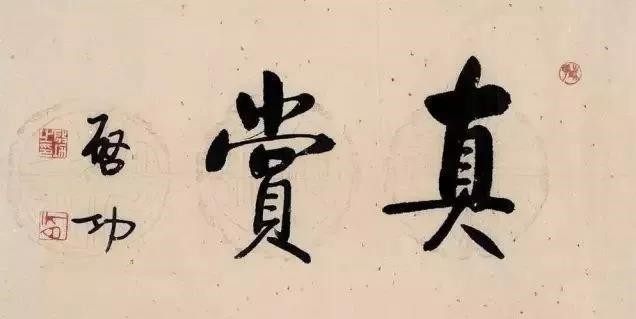 真賞
啓功